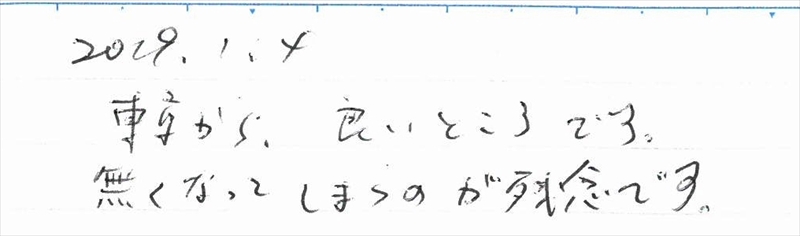 2019.1.4
東京から、良いところです。
無くなってしまうのが残念です。